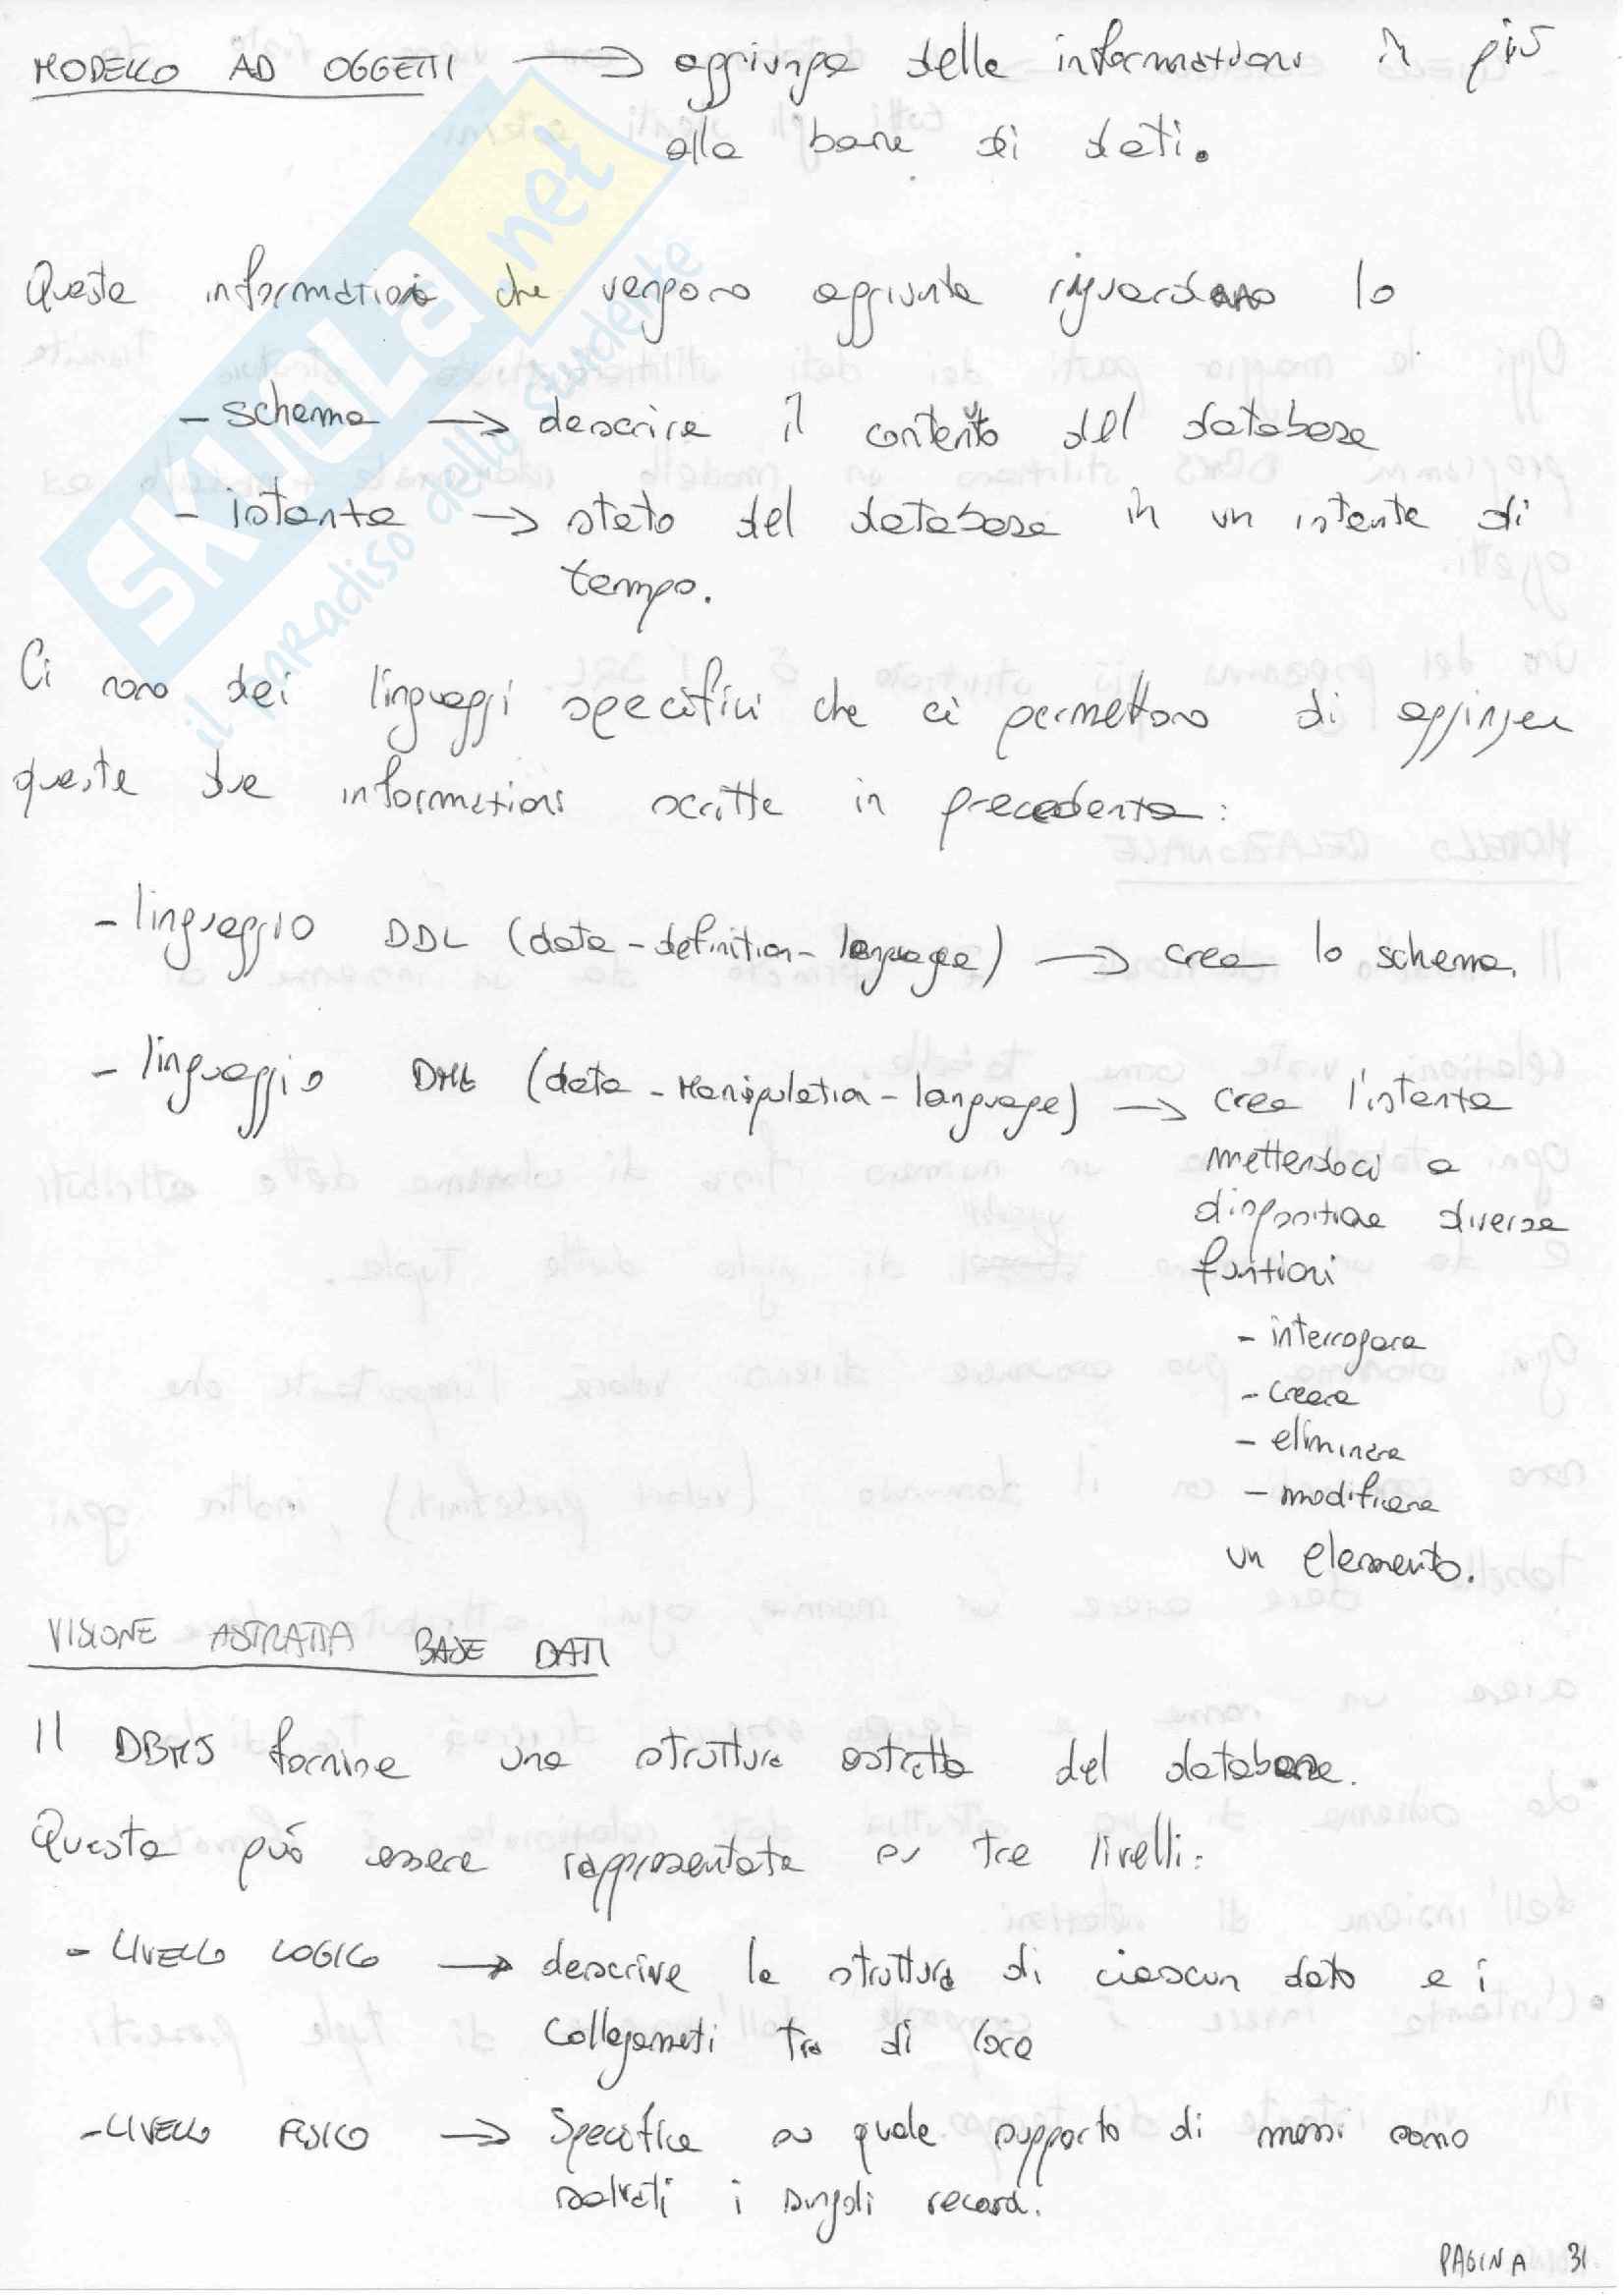 MODELLO AD OGGETTI → aggiunge delle informazioni in più
alla base di dati.
Queste informazioni che vengono aggiunte riguardano lo
- schema → descrive il contenuto del database
- istante → stato del database in un istante di
tempo.
Ci sono dei linguaggi specifici che ci permettono di aggiungere
queste due informazioni scritte in precedenza:
- linguaggio DDL (data-definition-language) → crea lo schema.
- linguaggio DML (data-Manipulation-language) → crea l'istante
mettendoci a
disposizione diverse
funzioni
- interrogare
- creare
- eliminare
- modificare
un elemento.
VISIONE ASTRATTA BASE DATI
Il DBMS fornisce una struttura astratta del database.
Questa può essere rappresentata su tre livelli:
- LIVELLO LOGICO → descrive la struttura di ciascun dato e i
collegameti tra di loro
- LIVELLO FISICO → Specifica su quale supporto di massi sono
salvati i singoli record.
PAGINA 31
SKUOLA.net
il paradiso dello studente